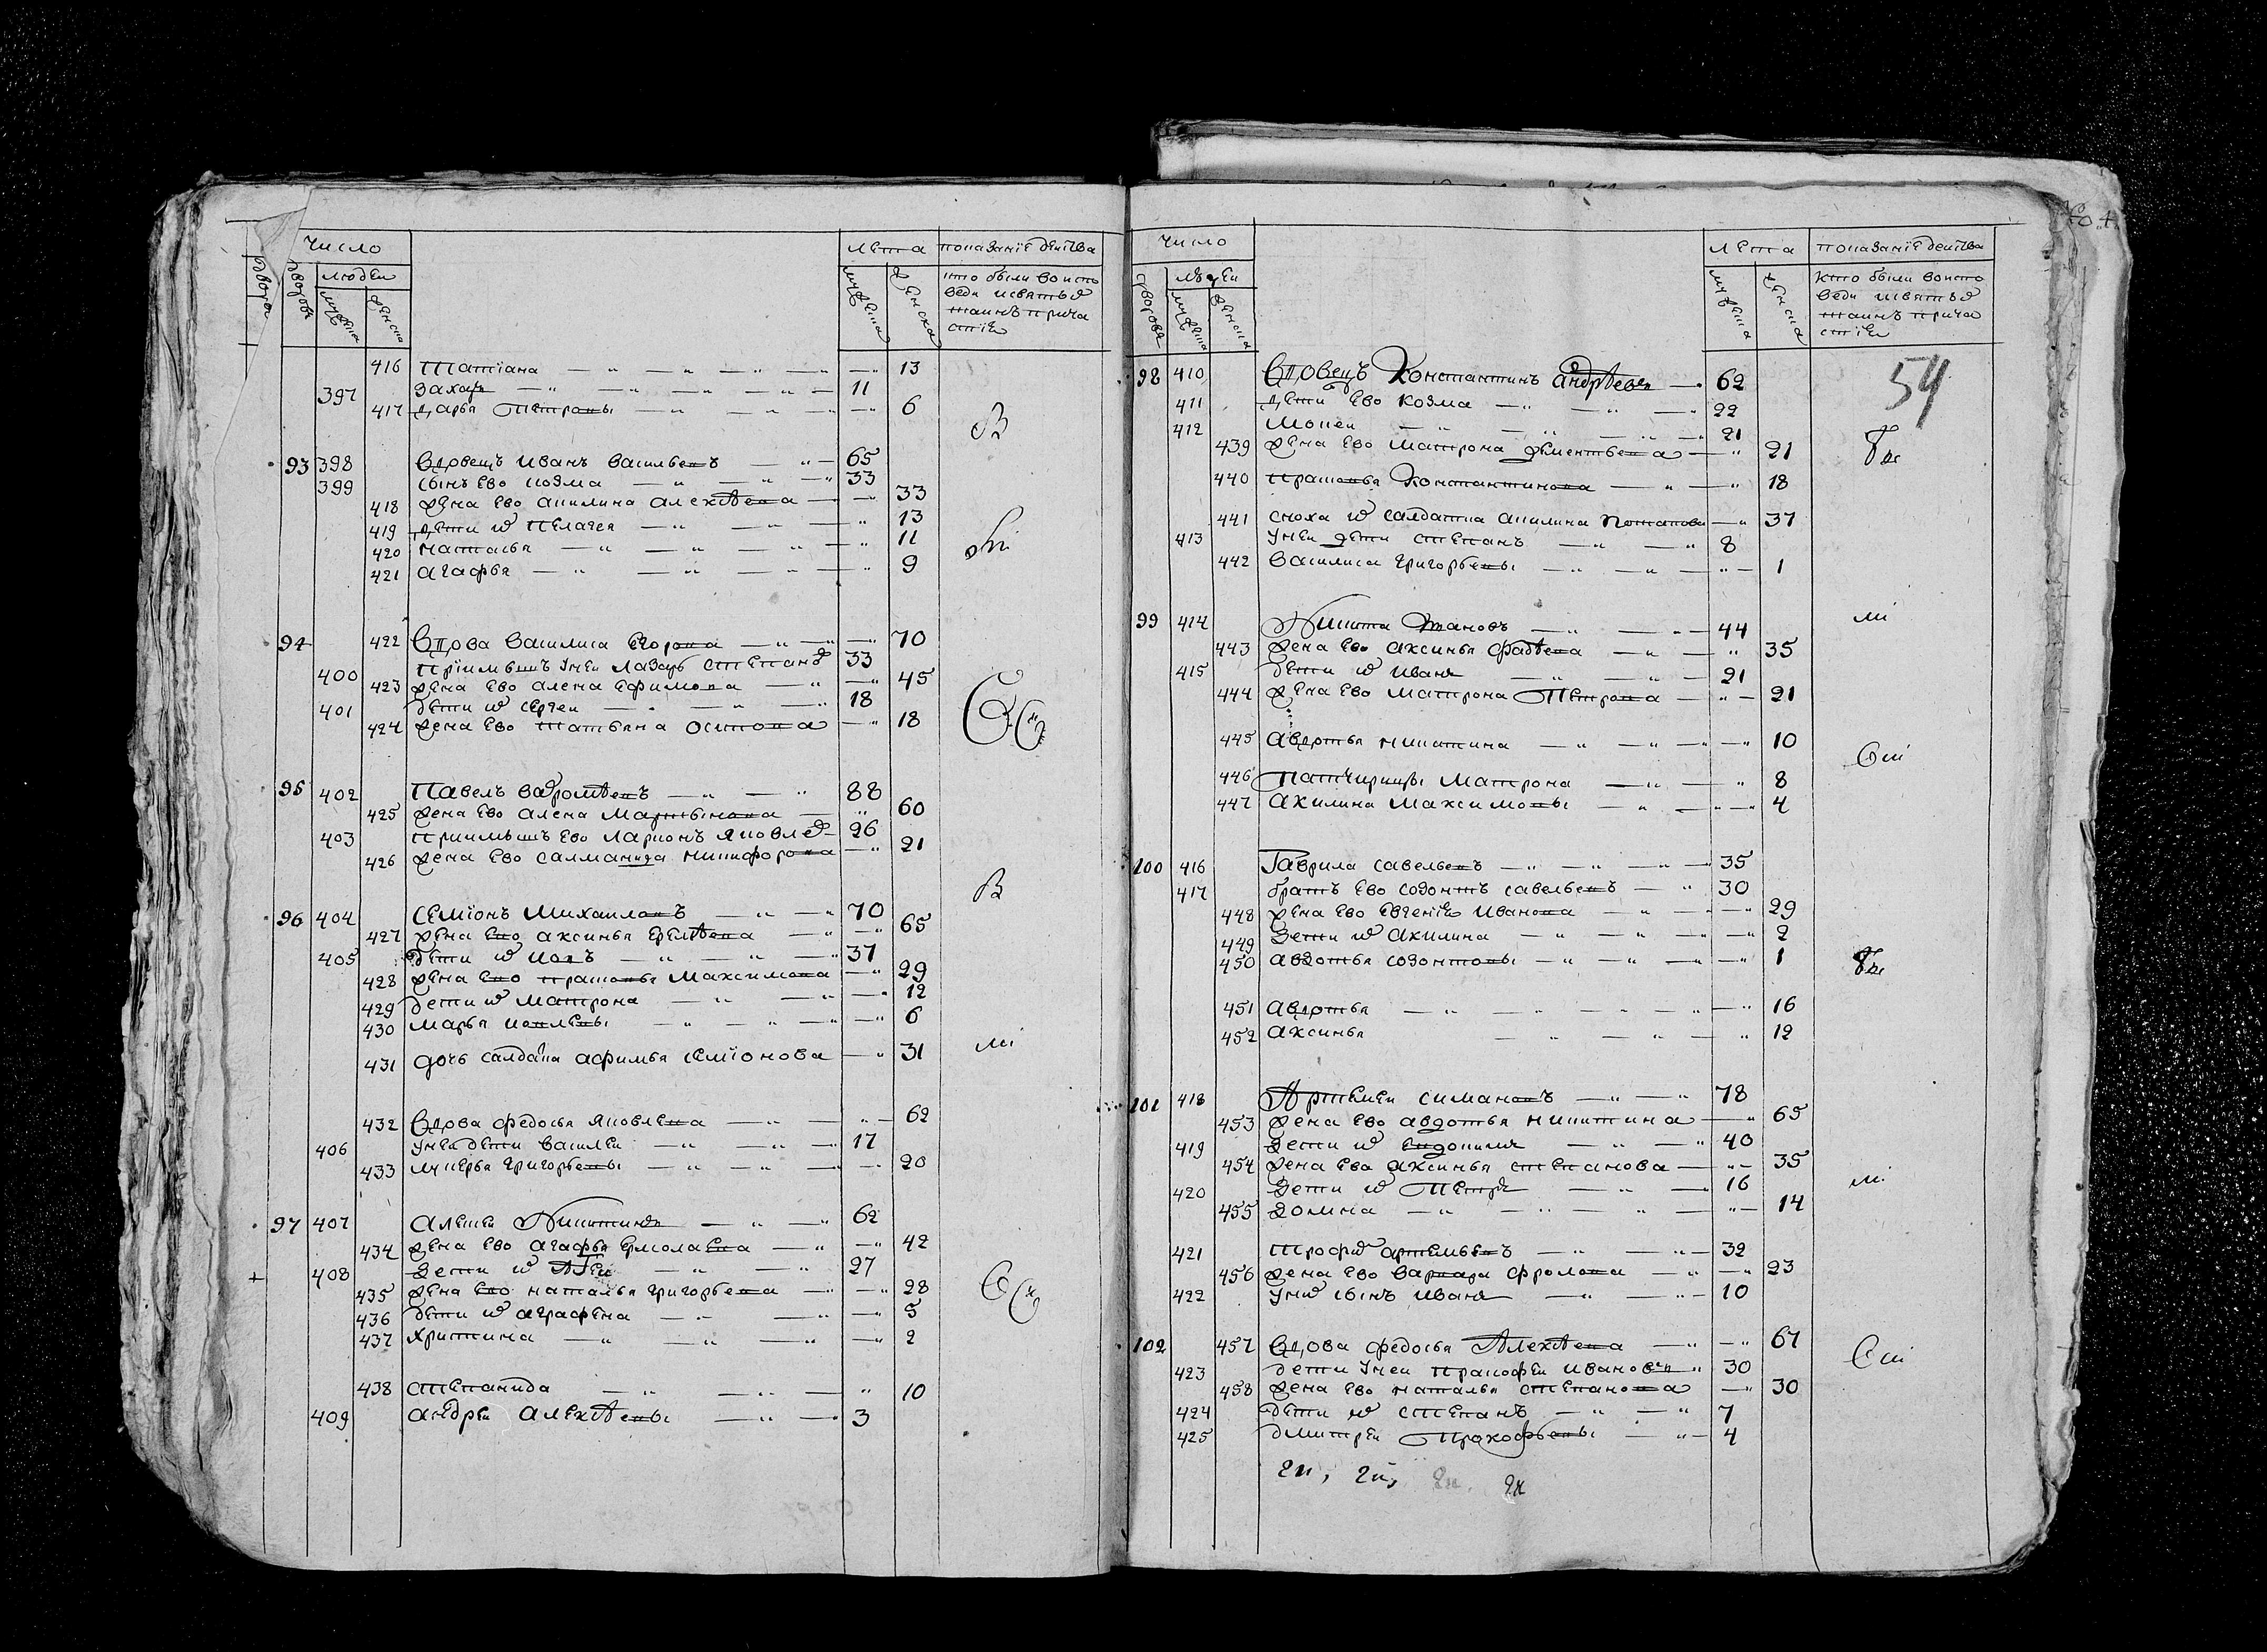 число
людеи
лета
показание действа
дворовъ
мужеска
женска
мужеска
женска
кто были во испо
веди исвятых
таинъ прича
стіи
416 татіана 13
397 захаръ 11
417 дарья Петровы 6
93 398 Вдовецъ иванъ васильевъ 65
399 сынъ ево козма 33
418 жена ево акилина алексѣева 33
419 дети их пелагея 13
420 наталья 11
421 агафья 9
94 422 Вдова василиса егорова 70
400 пріимышъ унеи лазарь степанов 33
423 жена ево алена ефимова 45
401 дети их сергеи 18
424 жена ево татьяна осипова 18
95 402 Павелъ варѳомѣевъ 88
425 жена ево алена мартынова 60
403 приимышъ ево ларионъ яковлев 26
426 жена ево салманида никифорова 21
96 404 семіонъ михаиловъ 70
427 жена ево аксинья еремѣева 65
405 дети их иовъ 37
428 жена ево прасковья максимова 29
429 дети их матрона 12
430 марья иовлевы 6
431 дочь салдатка афимья семіонова 31
432 вдова федосья яковлева 62
406 унея дети василеи 17
433 лукерья григорьевы 20
97 407 алексеи Никитинъ 62
434 жена ево агафья ермолаева 42
408 дети их Агеи 27
435 жена ево наталья григорьева 28
436 дети их аграфена 5
437 христина 2
438 степанида 10
409 андреи алексѣевы 3
число
людеи
лета
показание действа
дворовъ
мужеска
женска
мужеска
женска
кто были во испо
веди исвятых
таинъ прича
стіи
54
98 410 Вдовецъ Константинъ андрѣевъ 62
411 дети ево козма 22
412 мокеи 21
439 жена ево матрона дементьева 21
440 прасковья Константинова 18
441 сноха их салдатка акилина потапова 37
413 унеи дети степанъ 8
442 василиса григорьевы 1
99 414 Никита 44
443 жена ево аксинья фадѣева 35
415 дети их иванъ 21
444 жена ево матрона Петрова 21
445 авдотья никитина 10
446 патчирицы матрона 8
447 акилина максимовы 4
100 416 Гаврила савельевъ 35
417 братъ ево созонтъ савельевъ 30
448 жена ево евгенія иванова 29
449 дети их акилина 2
450 авдотья созонтовы 1
451 авдотья 16
452 аксинья 12
101 418 Артемеи симановъ 78
453 жена ево авдотья никитина 65
419 дети их евдокимъ 40
454 жена ева аксинья степанова 35
420 дети их Петръ 16
455 домна 14
421 трофим артемьевъ 32
456 жена ево варвара фролова 23
422 у них сынъ иванъ 10
102 457 Вдова федосья Алексѣева 67
423 дети унеи пракофеи ивановъ 30
458 жена ево наталья степанова 30
424 дети их степанъ 7
425 дмитреи Прокофьевы 4